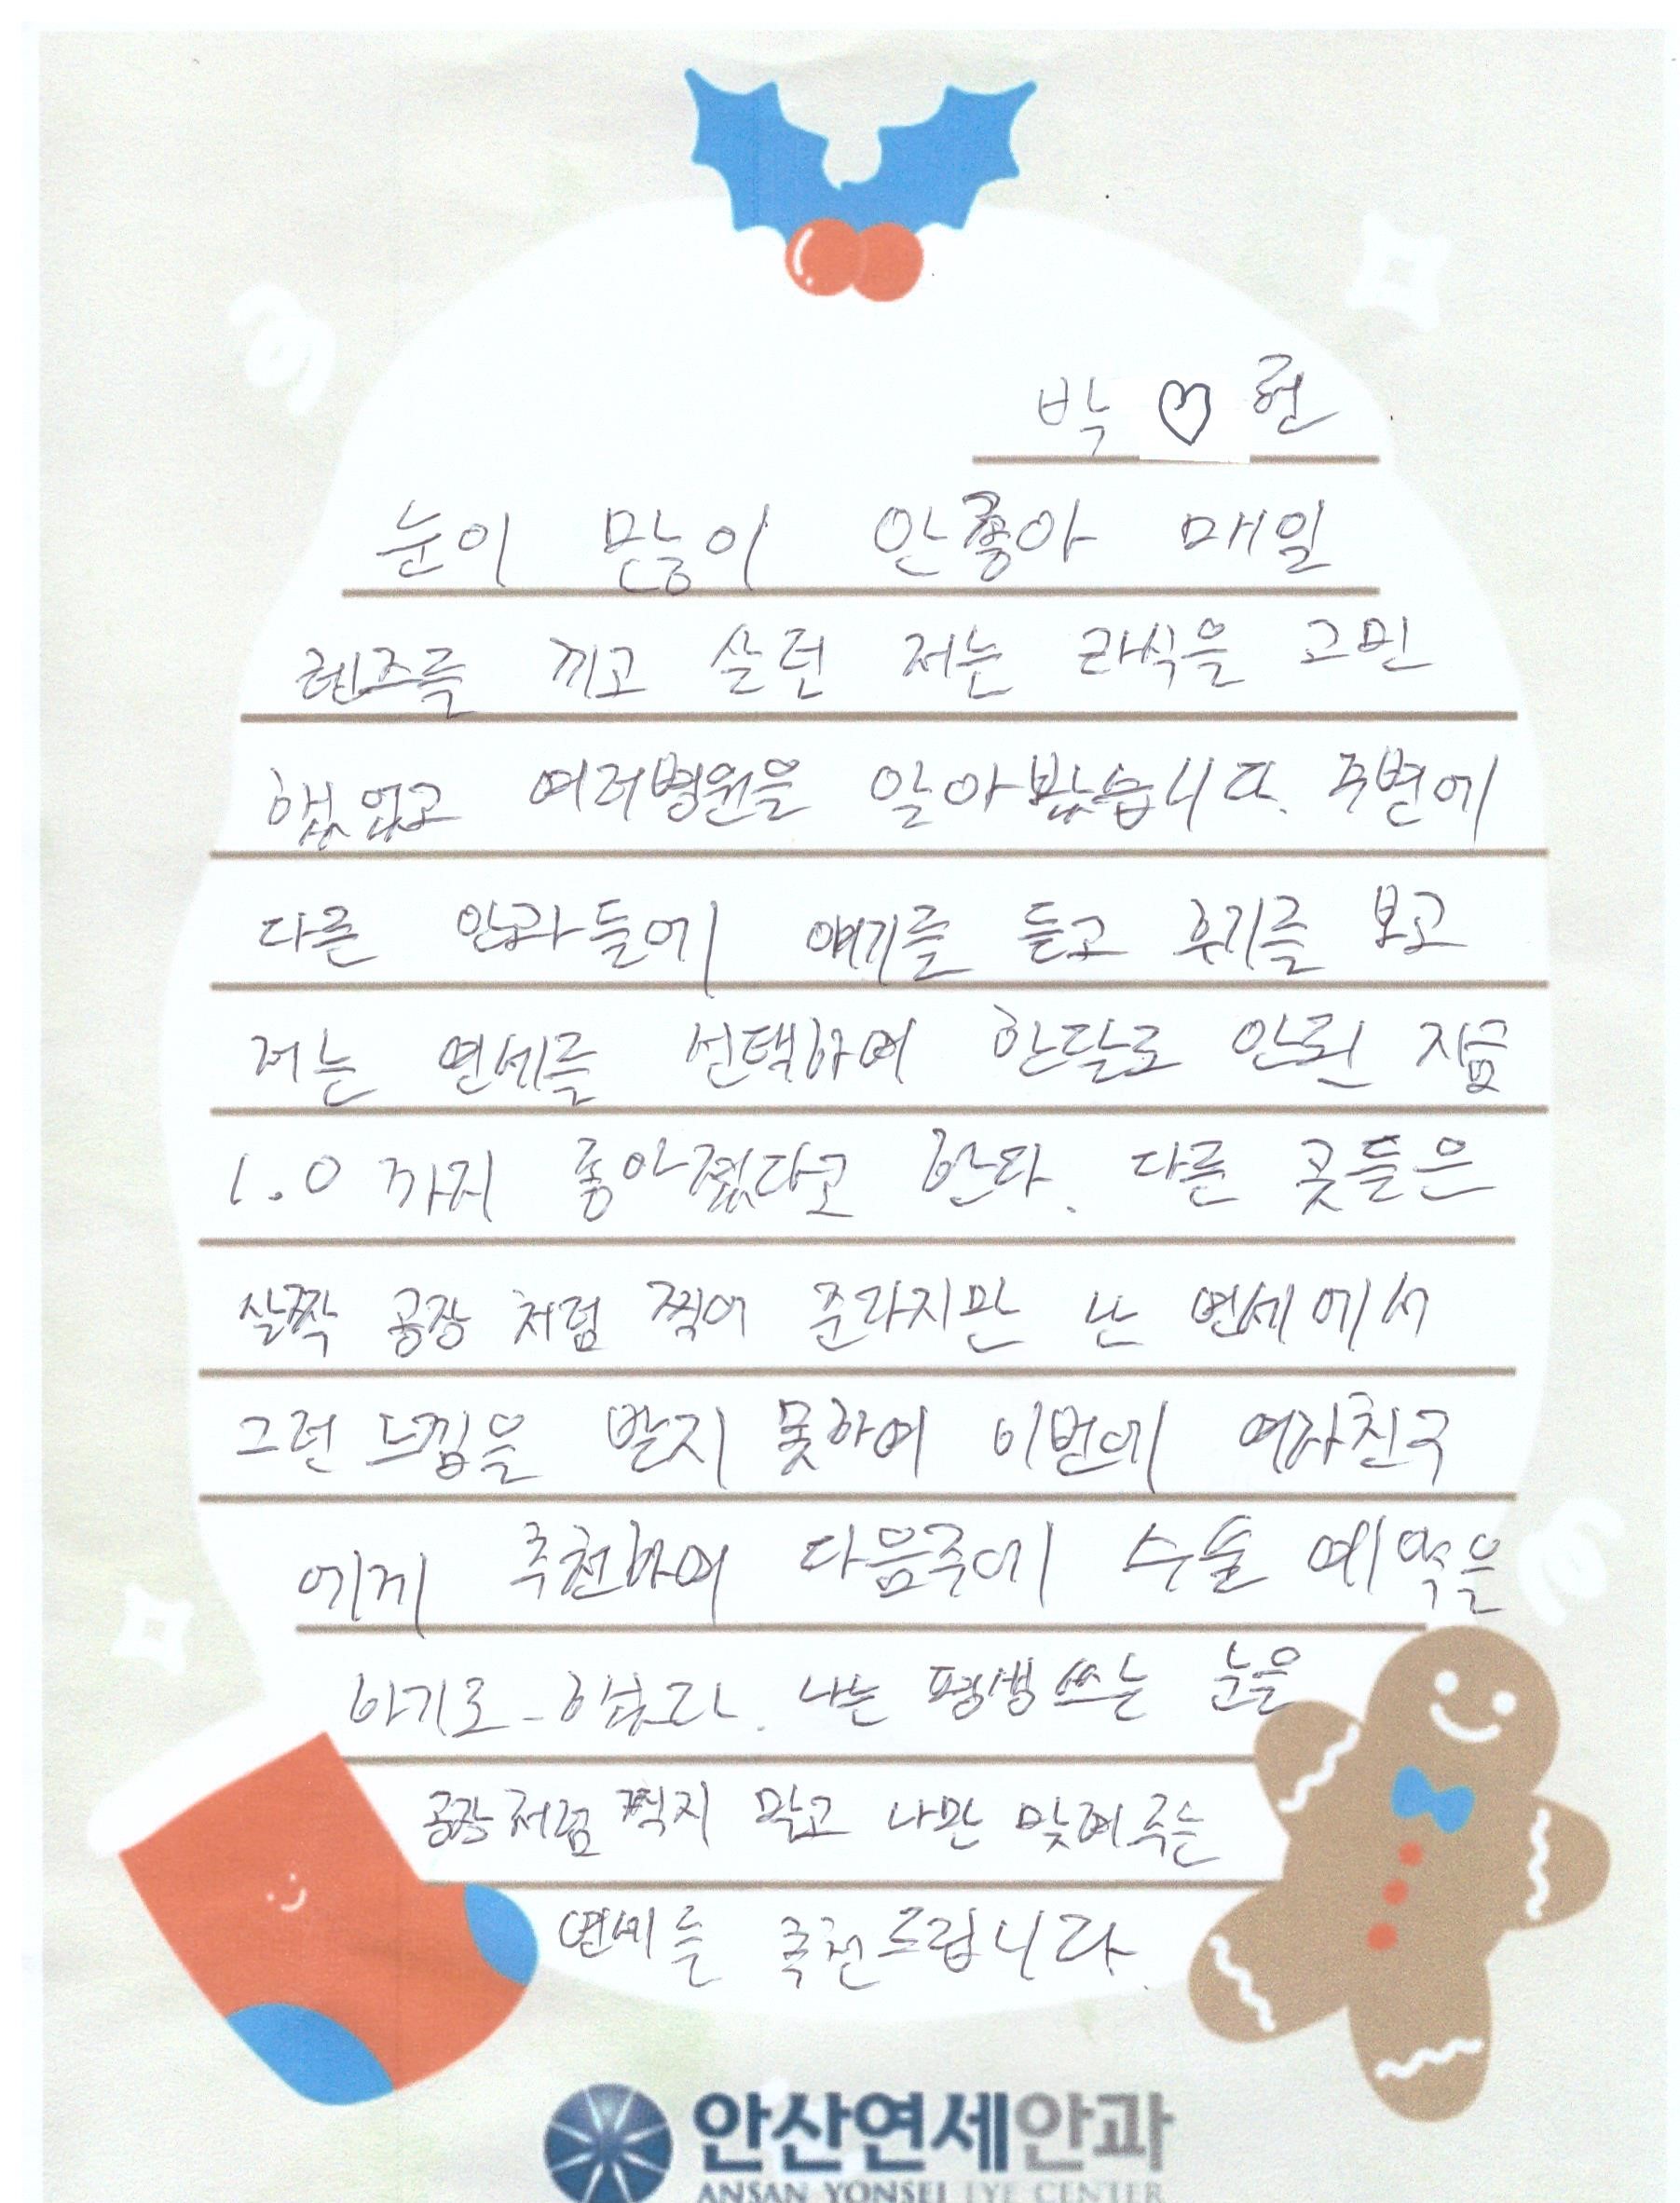 박 ♡ 현
눈이 많이 안좋아 매일
렌즈를 끼고 살던 저는 라식을 고민
했었고 여러병원을 알아봤습니다. 주변에
다른 안과들에 얘기를 듣고 후기를 보고
저는 연세를 선택하여 한달도 안된 지금
1.0 까지 좋아졌다고 한다. 다른 곳들은
살짝 공장 처럼 찍어 준라지만 난 연세에서
그런 느낌을 받지 못하여 이번에 여자친구
에게 추천하여 다음주에 수술 예약을
하기로 했다. 나는 평생쓰는 눈을
공장처럼 찍지 말고 나만 맞여주는
연세를 추천드립니다.
안산연세안과
ANSAN YONSEI EYE CENTER